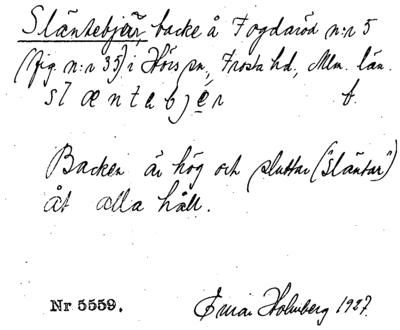 Släntebjär, backe å Fogdaröd n:r 5
(fig. n:r 35) i Hörs sn, Frosta hd., Mlm. län.
slæntabjér f.
Backen är hög och sluttar ("släntar")
åt alla håll.
Nr 5559. Einar Holmberg 1927.